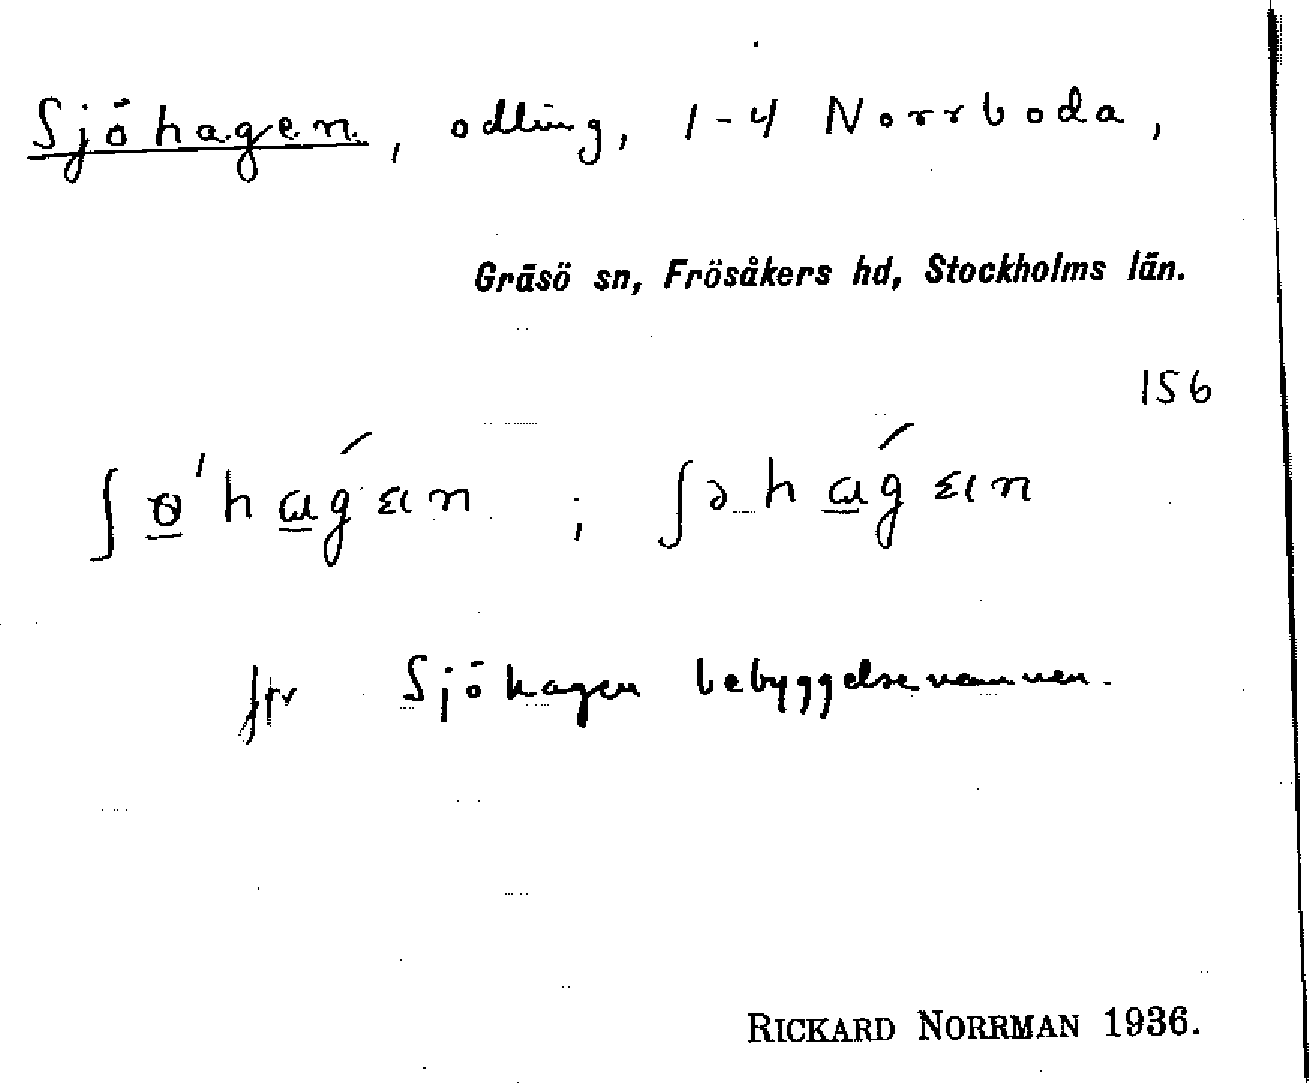 Sjöhagen, odling, 1-4 Norrboda,
Gräsö sn, Frösåkers hd, Stockholms län.
156
jfr Sjöhagen bebyggelsenamnen.
RICKARD NORRMAN 1936.